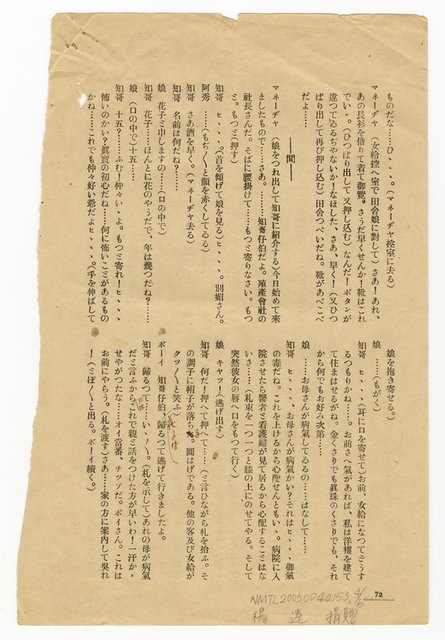 ものだな……ひ、、、。(マネーヂャ控室に去る)
マネーヂャ (女給控へ室で田舎娘に對して) さあ!あれ、
あの長衫を借りて着て御覽。さうだ早くせんか!靴はこれ
でい、。(ひつぱり出して又押し込む)なんだ!ボタンが
違つてゐるぢやないか!なほした、さあ、早く!(又ひつ
ぱり出して再び押し込む)田舎つぺいだね。靴があべこべ
だよ。
――間――
マネーヂャ (娘をつれ出して知哥に紹介する)今日始めて來
ましたもので……さあ。………知哥仔伯だよ。殖產會社の
社長さんだ。そばに腰掛けて……もつと寄りなさい。もつ
と。もつと(押す)
知哥 ヒ、、、、(首を傾げて娘を見る)ヒ、、、。別嬪さん。
阿秀 ……(もぢ〱と顏を赤くしてゐる)
知哥 さあ酒を早く。(マネーヂャ去る)
知哥 名前は何だね?……
娘 花子と申しますの……(口の中で)
知哥 花子……ほんとに花のやうだで、年は幾つだね?……
娘 (口の中で)十五……
知哥 十五?……ふむ!仲々い、よ。もつと寄れ!ヒ、、、、
怖いのかい?眞實の初心だね……何に怖いことがあるもの
かね……これでも仲々好い爺だよヒ、、、、。(手を伸ばして
娘を抱き寄せる。)
娘 ……(もがく)
知哥 ヒ、、、(耳に口を寄せて)お前、女給になつてどうす
るつもりかね……。お前さへ氣があれば、私は洋樓を建て
て住まはせるがね。金ぐさりでも眞珠のくさりでも、それ
から何でもお好み次第……
娘 ……お母さんが病氣してゐるの……はなして……
知哥 ヒ、、、、お母さんが病氣かい?それはヒ、、、、御氣
の毒だね。これを上げるから心配せんともい、。病院に入
院させたら醫者と看護婦が見て居るから心配することはな
い……(札束を一つ一つと膝の上にのせてやる。そして
突然彼女の唇へ口をもつて行く)
娘 キャツ!(逃げ出す)
知哥 何だ!押へて押へて……(と言ひながら札を拾ふ。そ
の調子に帽子が落ちる。圓はげである。他の客及び女給が
クツ〱と笑ふ)
ボーイ 知哥仔伯、歸るつて逃げて行きましたよ。
知哥 歸るつて……い、い、。(札を示して)あれの母が病氣
だと言ふからこれで親と話をつけた方が早いわ!一汗か
せやがつたな……オイ當番、チツプだ。ボイさん。これは
お前にやらう。(札を渡す)さあ……家の方に案內して吳れ
!(とぼ〱と出る。ボーイ續く。)
72
NMTL20050040153
楊逵 捐贈